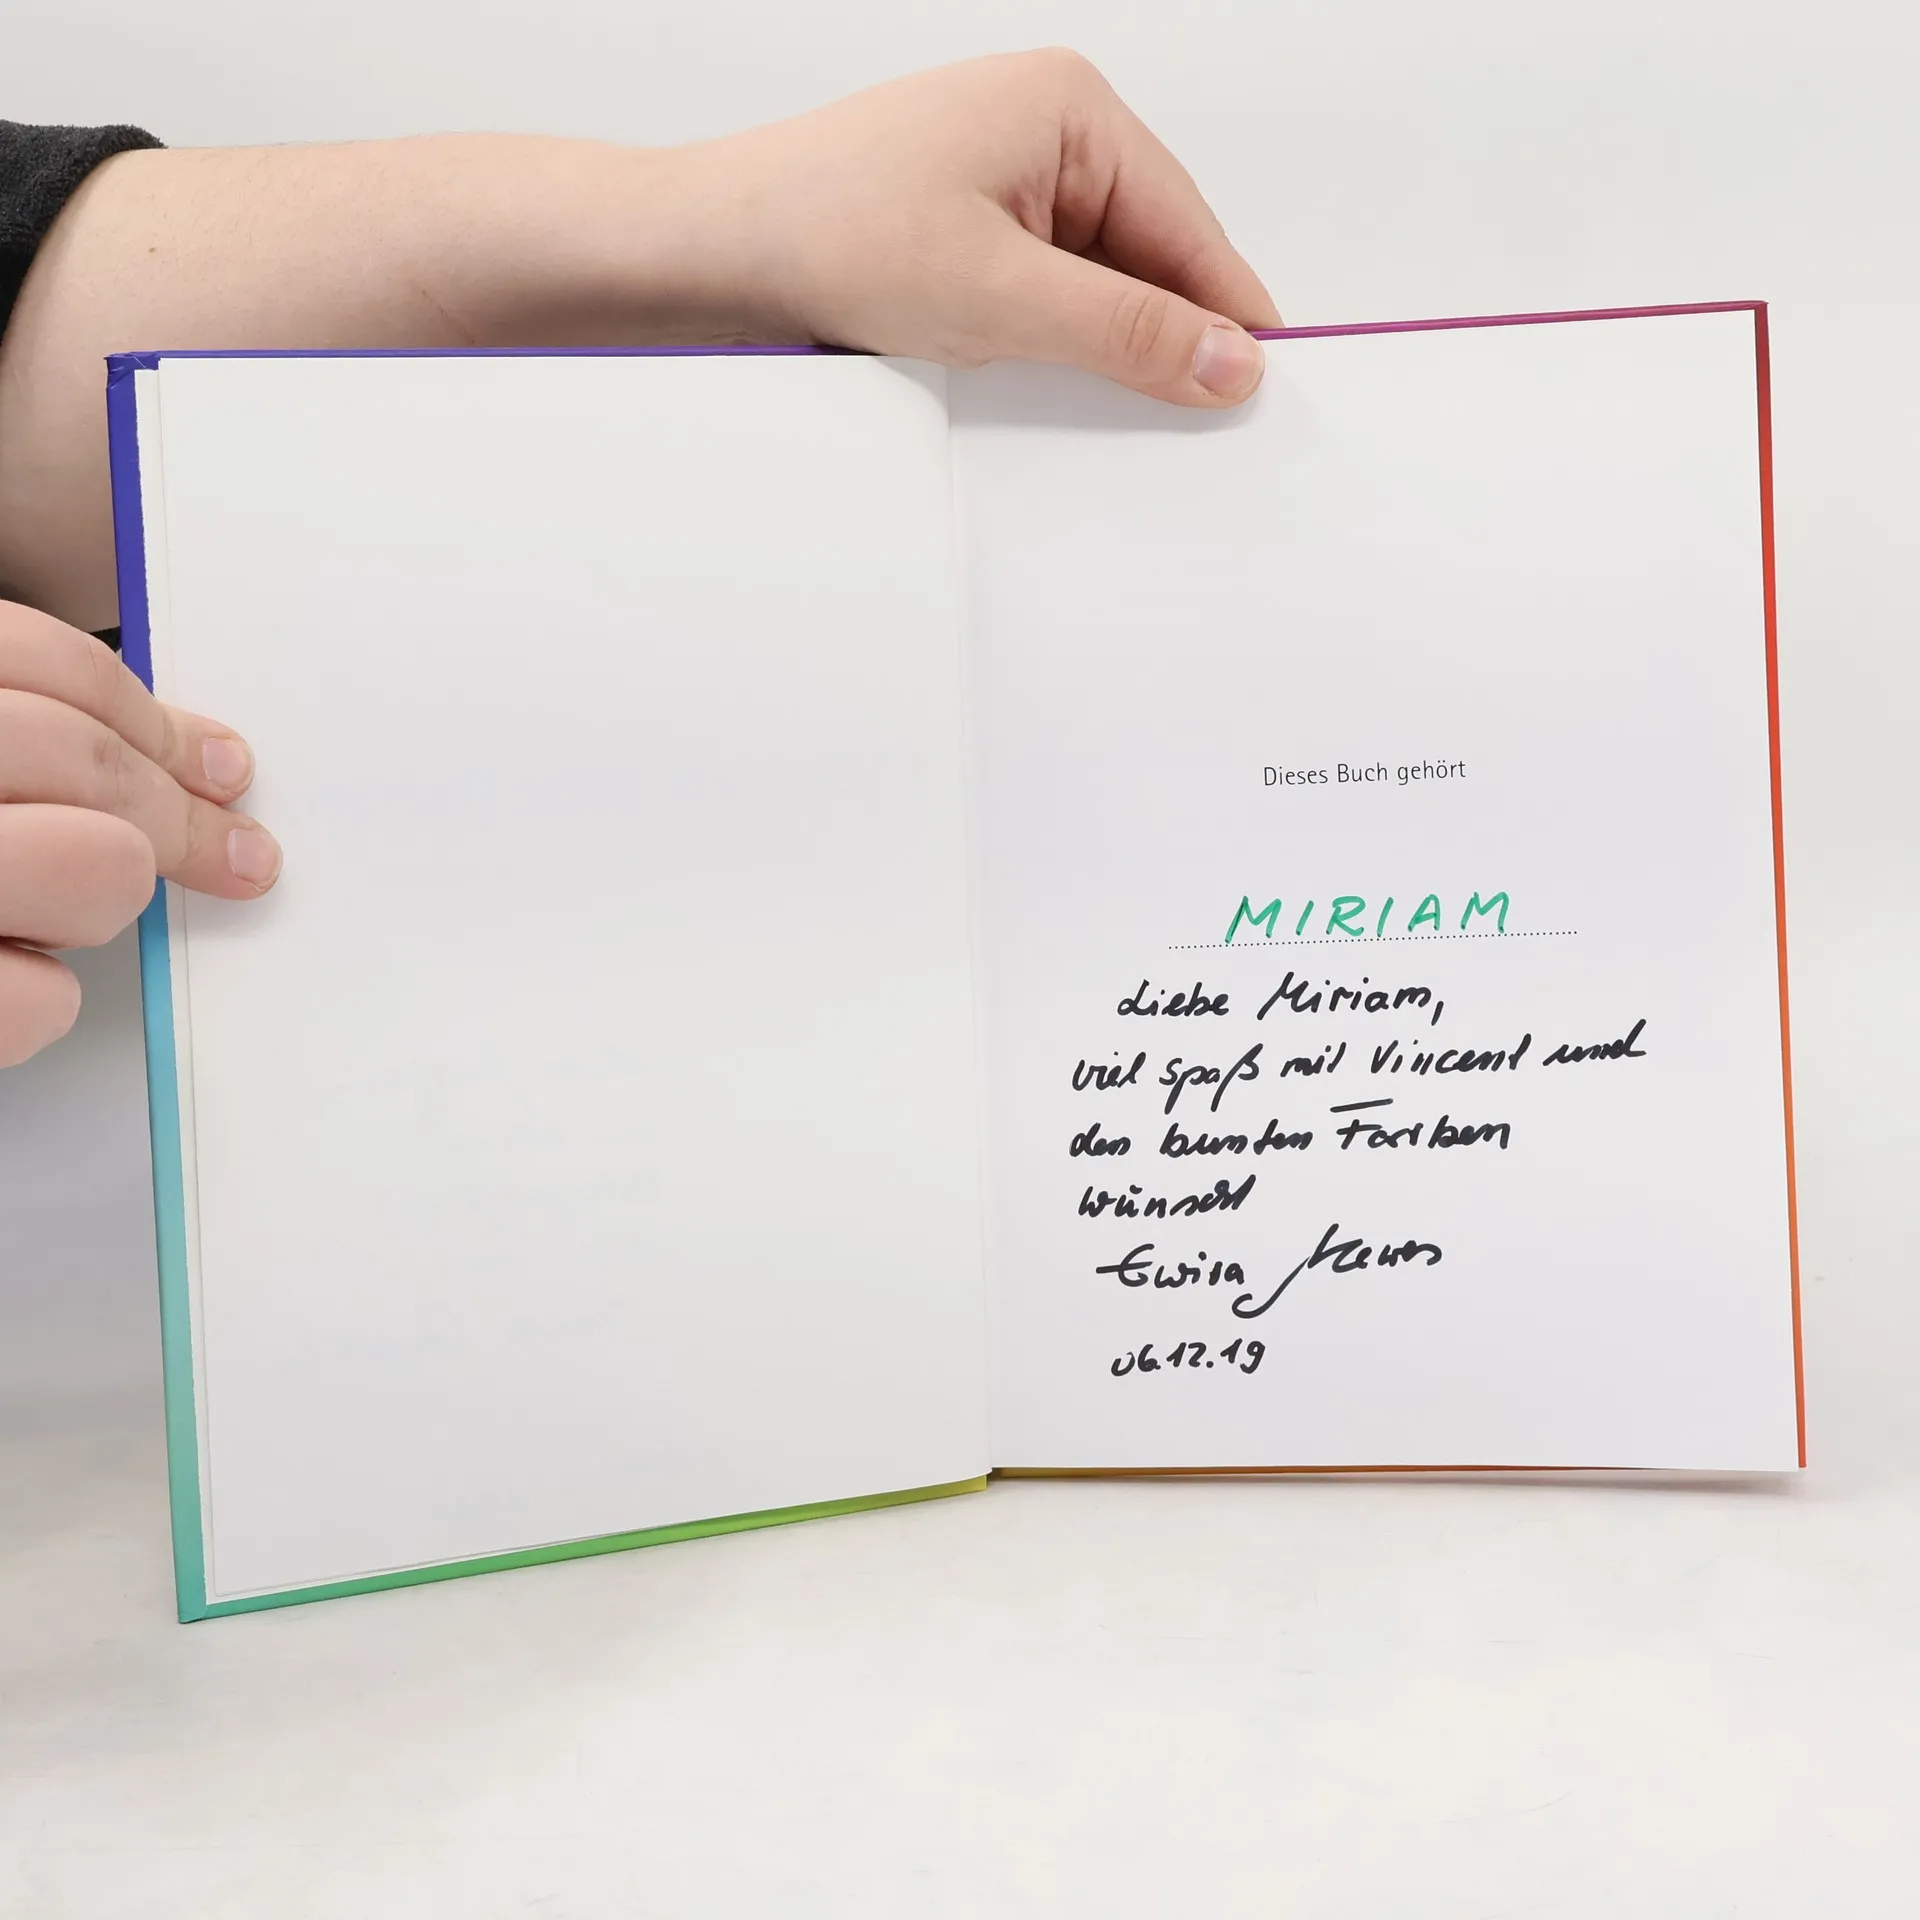 Dieses Buch gehört
MIRIAM
Liebe Miriam,
viel Spaß mit Vincent und
den bunten Farben
wünscht
06.12.19